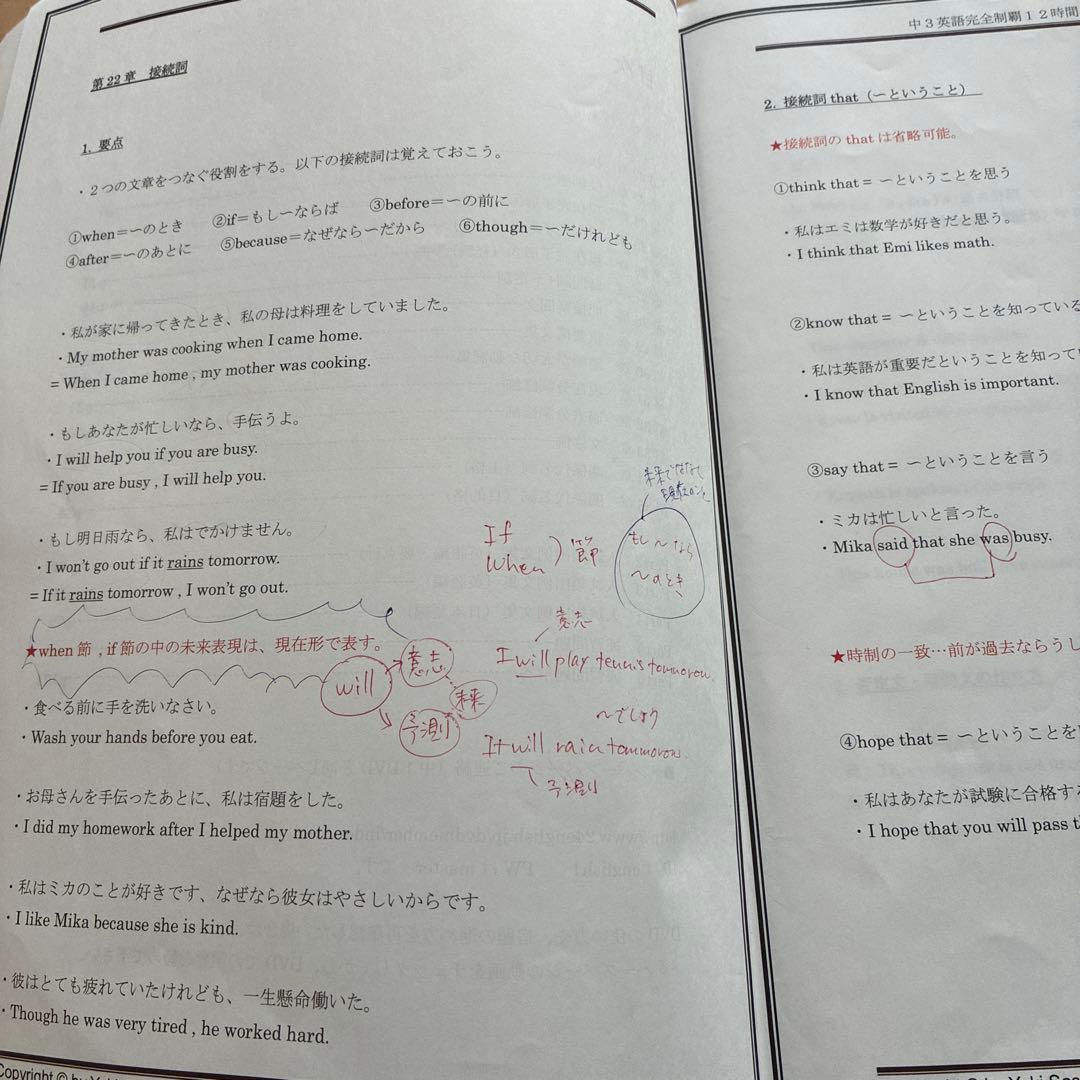 第22章　接続詞
1. 要点
・２つの文章をつなぐ役割をする。以下の接続詞は覚えておこう。
①when＝〜のとき　②if＝もし〜ならば　③before＝〜の前に
④after＝〜のあとに　⑤because＝なぜなら〜だから　⑥though＝〜だけれども
・私が家に帰ってきたとき、私の母は料理をしていました。
・My mother was cooking when I came home.
= When I came home , my mother was cooking.
・もしあなたが忙しいなら、手伝うよ。
・I will help you if you are busy.
= If you are busy , I will help you.
・もし明日雨なら、私はでかけません。
・I won't go out if it rains tomorrow.
= If it rains tomorrow , I won't go out.
★when 節 , if 節の中の未来表現は、現在形で表す。
・食べる前に手を洗いなさい。
・Wash your hands before you eat.
・お母さんを手伝ったあとに、私は宿題をした。
・I did my homework after I helped my mother.
・私はミカのことが好きです、なぜなら彼女はやさしいからです。
・I like Mika because she is kind.
・彼はとても疲れていたけれども、一生懸命働いた。
・Though he was very tired , he worked hard.
If
When
) 節
もし〜なら
〜のとき
will
意志
未来
予測
意志
I will play tennis tomorrow.
〜でしょう
It will rain tommorow.
予測
中３英語完全制覇１２時間
2. 接続詞 that（〜ということ）
★接続詞の that は省略可能。
①think that = 〜ということを思う
・私はエミは数学が好きだと思う。
・I think that Emi likes math.
②know that = 〜ということを知っている
・私は英語が重要だということを知って
・I know that English is important.
③say that = 〜ということを言う
・ミカは忙しいと言った。
・Mika said that she was busy.
★時制の一致…前が過去ならうし
④hope that = 〜ということを
・私はあなたが試験に合格する
・I hope that you will pass
Copyright © by